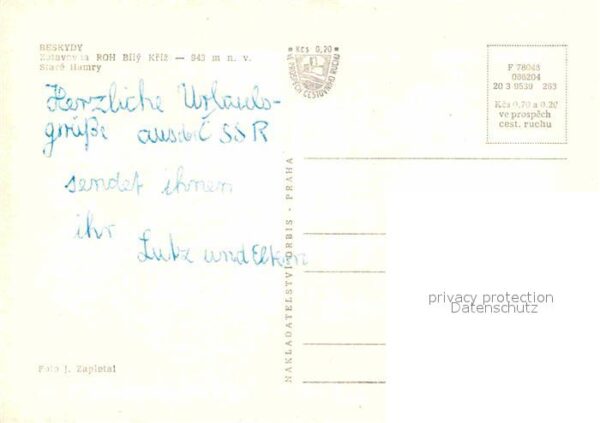 BESKYDY
Zotavovna ROH Bílý Kříž — 943 m n. v.
Staré Hamry
Herzliche Urlaubs-
grüße aus der ČSSR
sendet ihnen
ihr
Lutz und Eltern
Foto J. Zapletal
NAKLADATELSTVÍ ORBIS - PRAHA
Kčs 0,20
VE PROSPĚCH CESTOVNÍHO RUCHU
F 78048
20 3 9539 263
Kčs 0,70 a 0.20
ve prospěch
cest. ruchu
privacy protection
Datenschutz